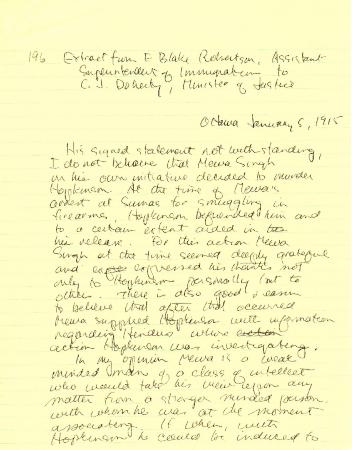 196 Extract from E Blake Robertson, Assistant
Superintendent of Immigration to
C. J. Doherty, Minister of Justice
Ottawa January 5, 1915
His signed statement not withstanding,
I do not believe that Mewa Singh
on his own initiative decided to murder
Hopkinson. At the time of Mewa's
arrest at Sumas for smuggling in
firearms, Hopkinson befriended him and
to a certain extent aided in
his release. For this action Mewa
Singh at the time seemed deeply grateful
and expressed his thanks not
only to Hopkinson personally but to
others. There is also good reason
to believe that after that occurred
Mewa supplied Hopkinson with information
regarding Hindus whose
action Hopkinson was investigating.
In my opinion Mewa is a weak
minded man of a class of intellect
who would take his view upon any
matter from a stronger minded person
with whom he was at the moment
associating. If when, with
Hopkinson he could be induced to